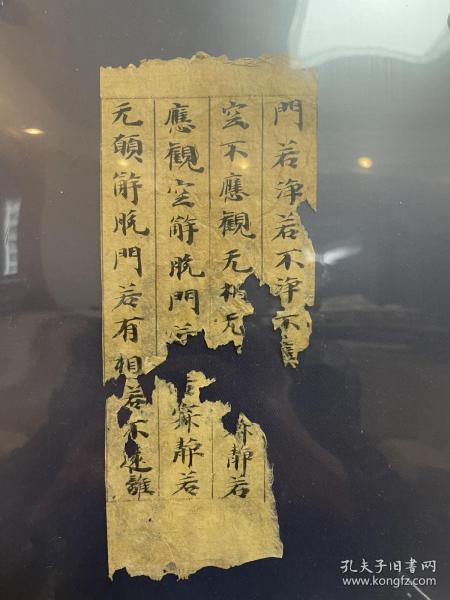 門若淨若不淨不應
空不應觀无相无 靜若
應觀空解脫門 寂靜若
无願解脫門若有相若不遠離
孔夫子旧书网
www.kongfz.com